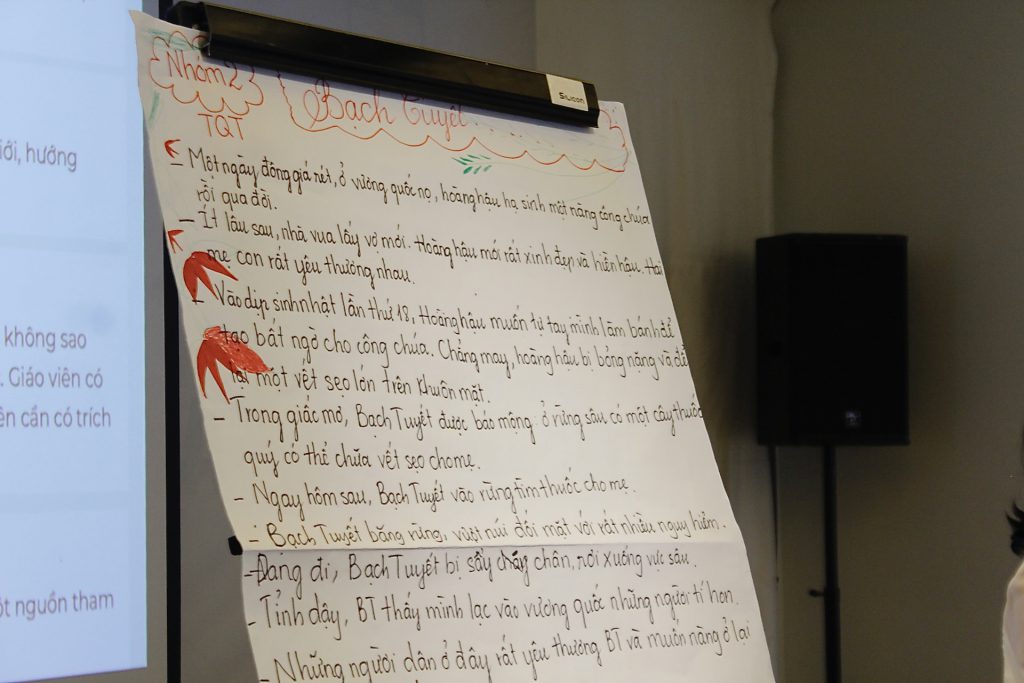 iới, hướng
không sao
. Giáo viên có
ên cần có trích
ột nguồn tham
SILICON
Nhóm 2
TQT
Bạch Tuyết
- Một ngày đông giá rét, ở vương quốc nọ, hoàng hậu hạ sinh một nàng công chúa
rồi qua đời.
- Ít lâu sau, nhà vua lấy vợ mới. Hoàng hậu mới rất xinh đẹp và hiền hậu. Hai
mẹ con rất yêu thương nhau.
- Vào dịp sinh nhật lần thứ 18, Hoàng hậu muốn tự tay mình làm bánh để
tạo bất ngờ cho công chúa. Chẳng may, hoàng hậu bị bỏng nặng và để
lại một vết sẹo lớn trên khuôn mặt.
- Trong giấc mơ, Bạch Tuyết được báo mộng: ở rừng sâu có một cây thuốc
quý có thể chữa vết sẹo cho mẹ.
- Ngay hôm sau, Bạch Tuyết vào rừng tìm thuốc cho mẹ.
- Bạch Tuyết băng rừng, vượt núi đối mặt với rất nhiều nguy hiểm.
- Đang đi, Bạch Tuyết bị sẩy chân, rơi xuống vực sâu.
- Tỉnh dậy, BT thấy mình lạc vào vương quốc những người tí hon.
- Những người dân ở đây rất yêu thương BT và muốn nàng ở lại